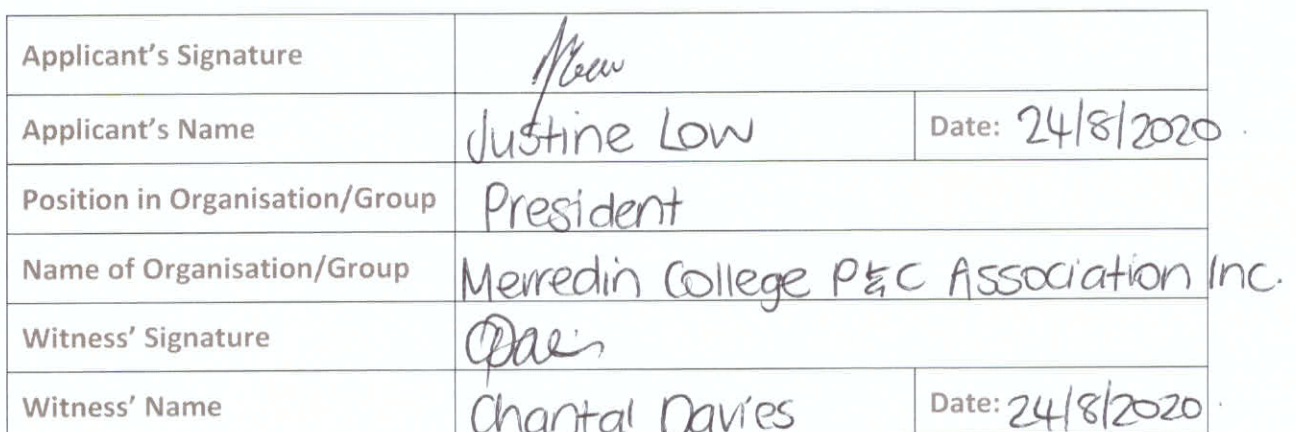 Applicant's Signature
Applicant's Name Justine Low Date: 24/8/2020
Position in Organisation/Group President
Name of Organisation/Group Merredin College P&C Association Inc.
Witness' Signature
Witness' Name Chantal Davies Date: 24/8/2020